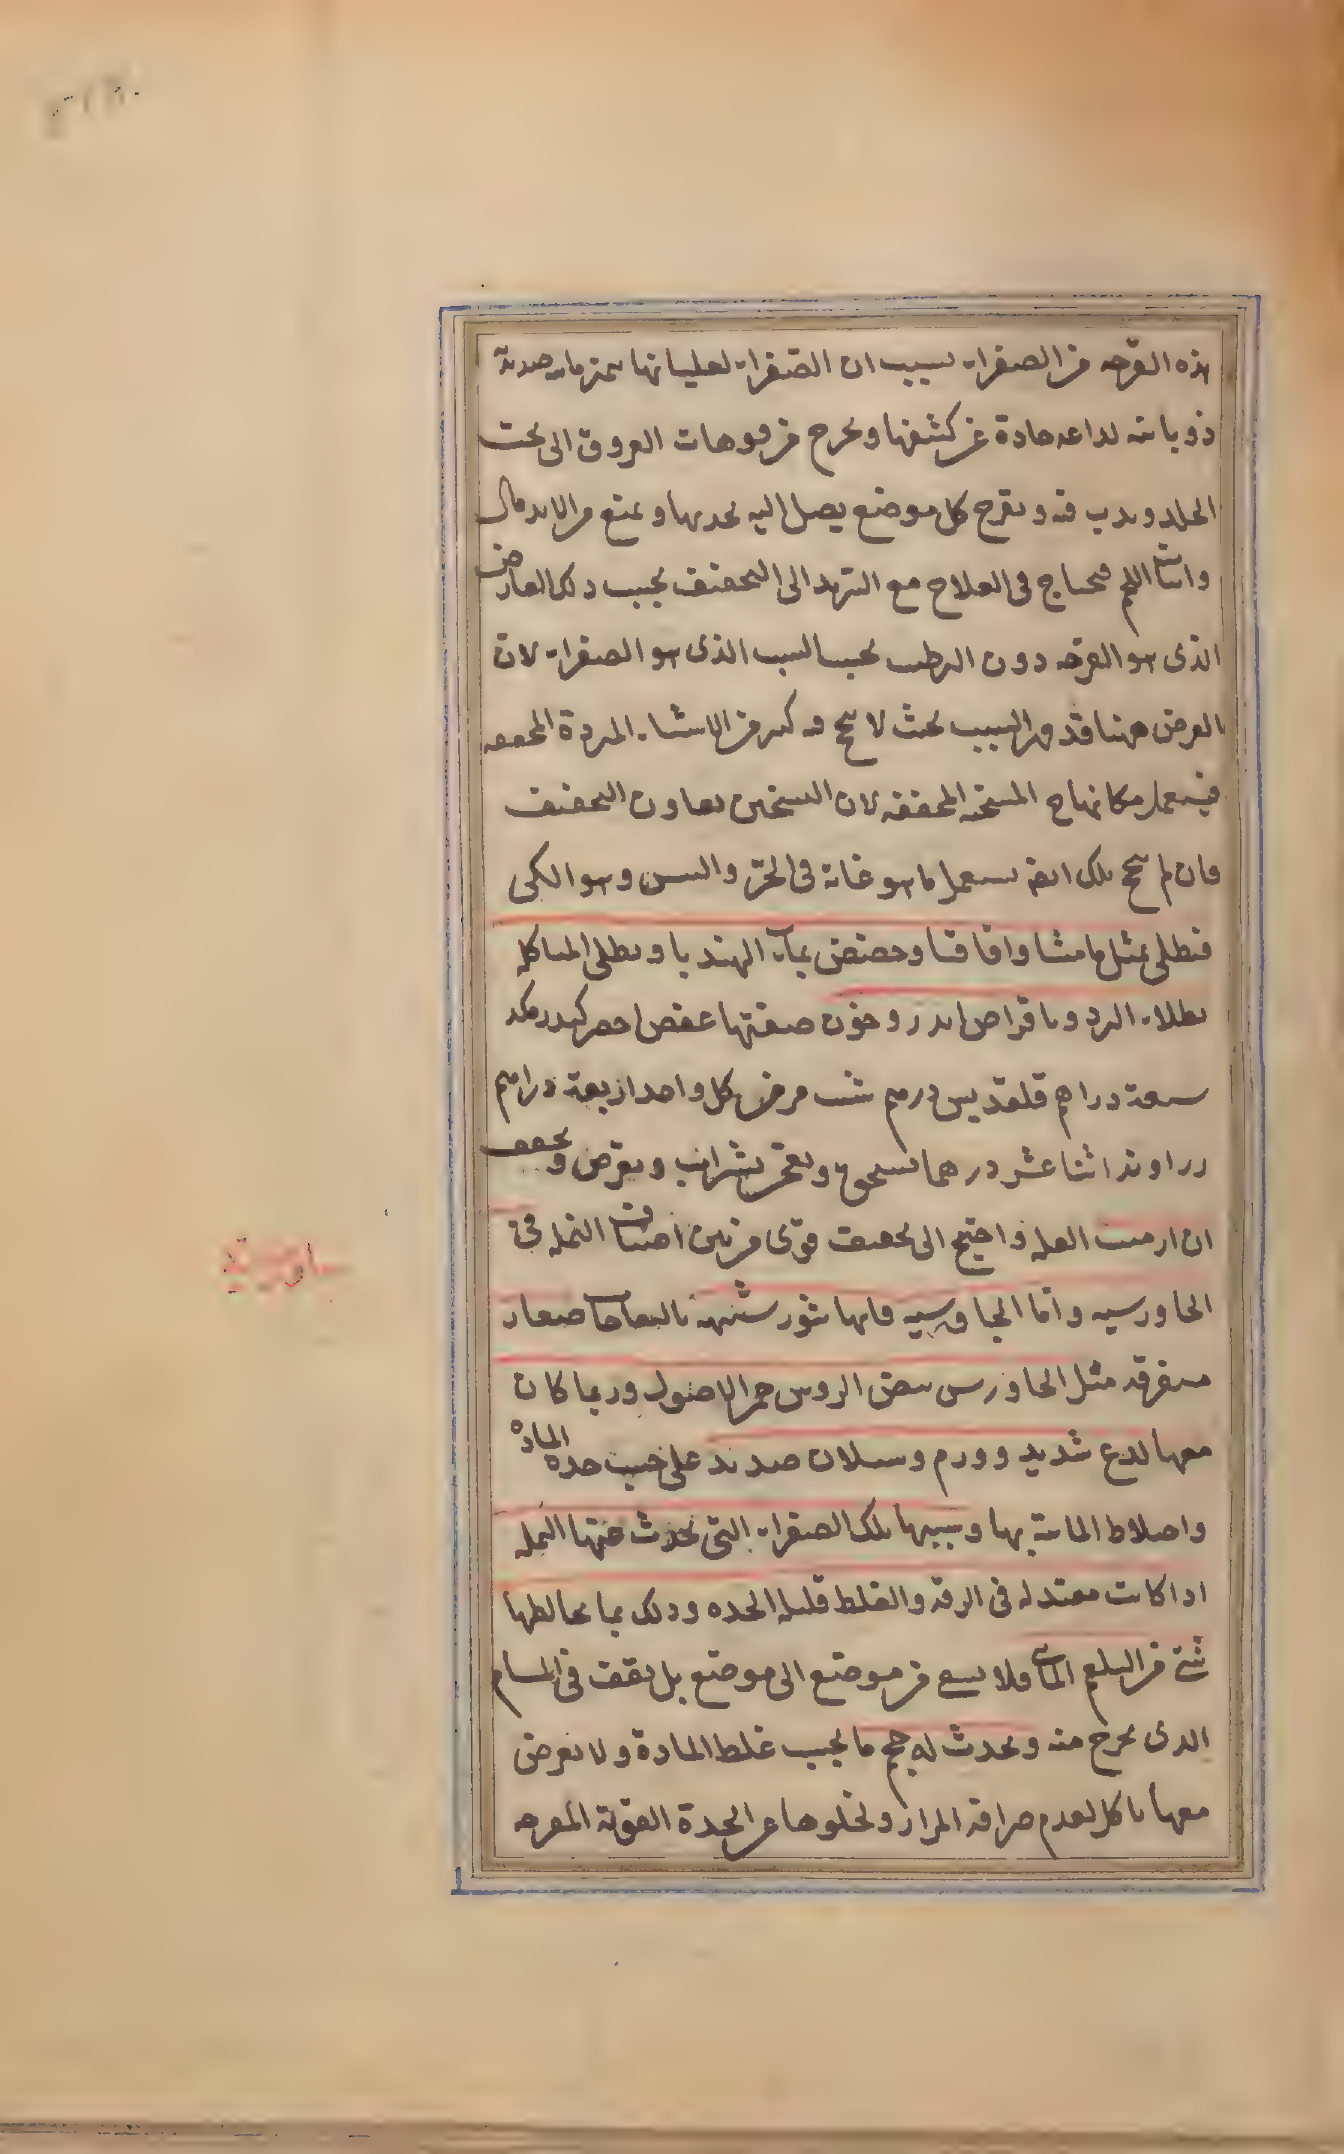 هذه القرحه من الصفراء بسبب ان الصفراء لغليانها تميز مائيه صديدية
ذوبانيه لذاعه حادة عن كثيفها ويخرج من فوهات العروق الى تحت
الجلد ويدب فيه ويقرح كل موضع يصل اليه بحدتها ويمنع من الاندمال
وانبات اللحم فيحتاج فى العلاج مع التبريد الى التجفيف بحسب ذلك العارض
الذى هو القرحه دون الترطيب بحسب السبب الذى هو الصفراء لان
العرض ههنا قد قهر السبب بحيث لا ينجح فيه كثير من الاشياء المبردة المجففه
فيستعمل مكانها المسخنه المجففه لان التسخين يعاون التجفيف
فان لم ينجح تلك ايضا يستعمل ما هو غاية فى الحر واليبس وهو الكى
فتطلى بمثل مامیثا واقاقيا وحضض بماء الهندبا ويطلى المتاكله
بطلاء البرد وباقراص اندروخون صفتها عفص اخضر كندر مكد
سبعة دراهم قلقديس درهم شب مر من كل واحد اربعة دراهم
زراوند اثنا عشر درهما يسحق ويعجن بشراب ويقرص ويجفف
ان ازمنت العله واحتيج الى تجفيف قوى من بين اصناف النمله فى
الجاورسيه واما الجاورسيه فانها بثور شبيهة بالنفاخات صغار
متفرقه مثل الجاورس بيض الروس حمر الاصول وربما كان
معها لدغ شديد وورم وسيلان صديد على حسب حدة المادة
واختلاط المائية بها وسببها تلك الصفراء التى تحدث عنها النمله
اذا كانت معتدلة فى الرقه والغلظ قليله الحده وذلك بما يخالطها
شئ من البلغم المائى فلا يسعى من موضع الى موضع بل يقف فى المسام
الذى يخرج منه ويحدث له حجم ما بحسب غلظ المادة ولا يعرض
معها تاكل لعدم صرافه المرار ولخلوها عن الحدة القوية المقرحه
جاورسية